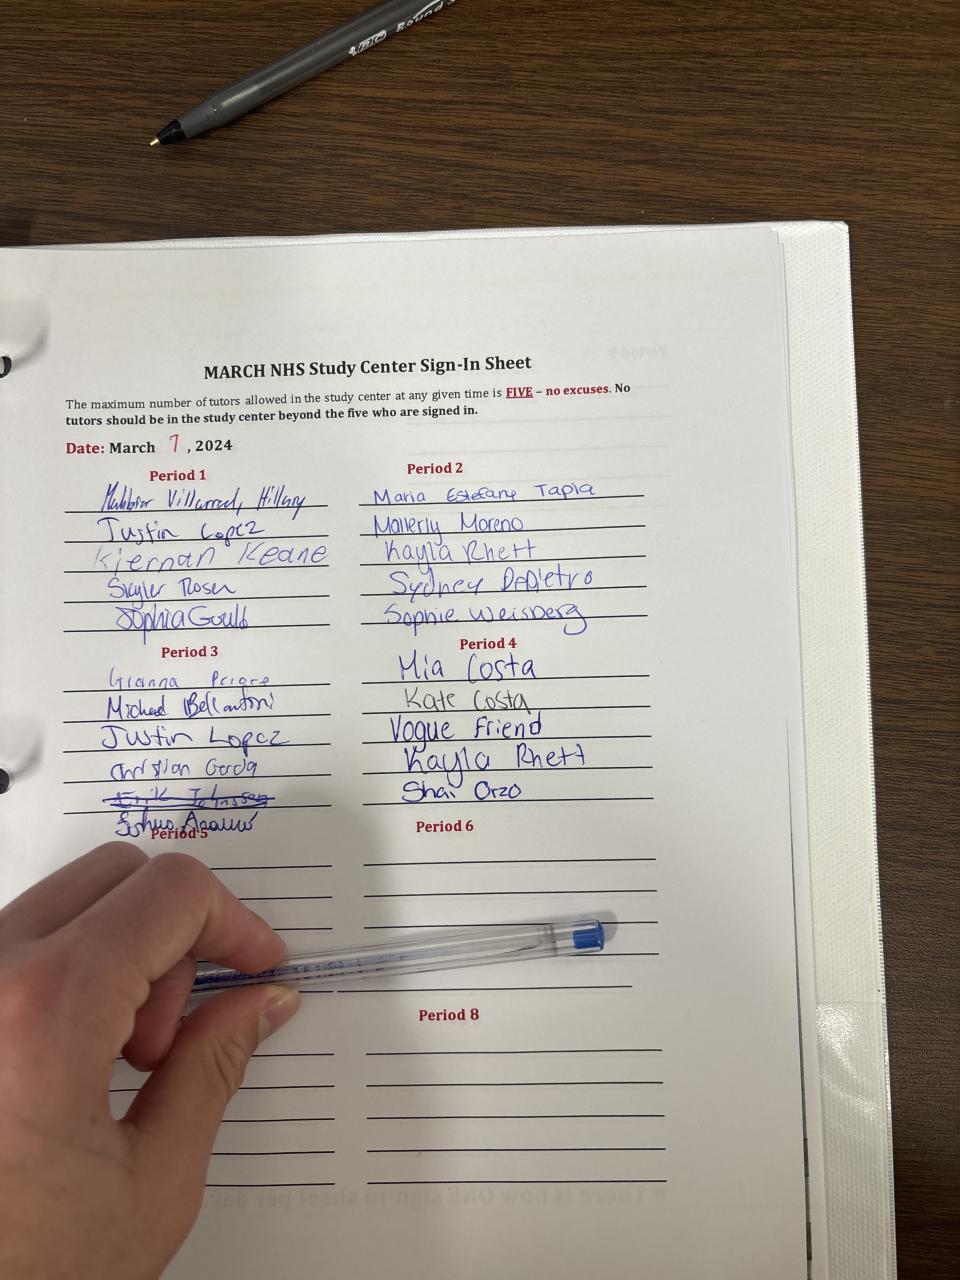 BIC Round S
MARCH NHS Study Center Sign-In Sheet
The maximum number of tutors allowed in the study center at any given time is FIVE – no excuses. No
tutors should be in the study center beyond the five who are signed in.
Date: March 7, 2024
Period 1
Villarreal, Hillary
Justin Lopez
Kiernan Keane
Skyler Rosen
Sophia Gould
Period 2
Maria Estefany Tapia
Mallerly Moreno
Kayla Rhett
Sydney DePietro
Sophie Weisberg
Period 3
Gianna Priore
Michael Bellantoni
Justin Lopez
Christian Garcia
Erik Johnsson
Period 4
Mia Costa
Kate Costa
Vogue Friend
Kayla Rhett
Shai Orzo
Period 5
Period 6
Period 8
Period 9
* There is now ONE sign-in sheet per day